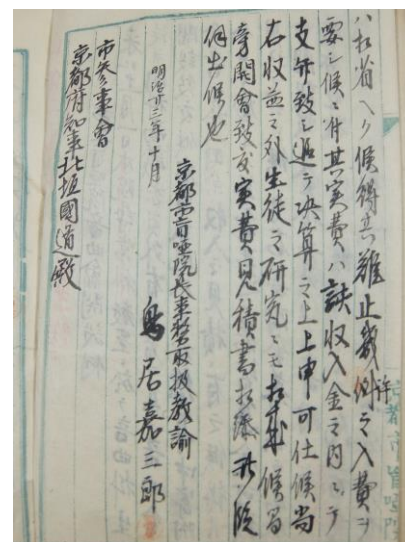 ハ相省ヘク候得共難止幾許之入費ヲ
要シ候ニ付其実費ハ該収入金之内ニテ
支弁致シ追テ決算之上上申可仕候尚
右収益之外生徒之研究ニモ相成候ニ
旁開會致度実費見積書相添此段
伺出候也
明治廿三年十月
京都市盲唖院長事務取扱教諭
鳥居嘉三郎
市参事會
京都府知事北垣國道殿
京都市盲唖院